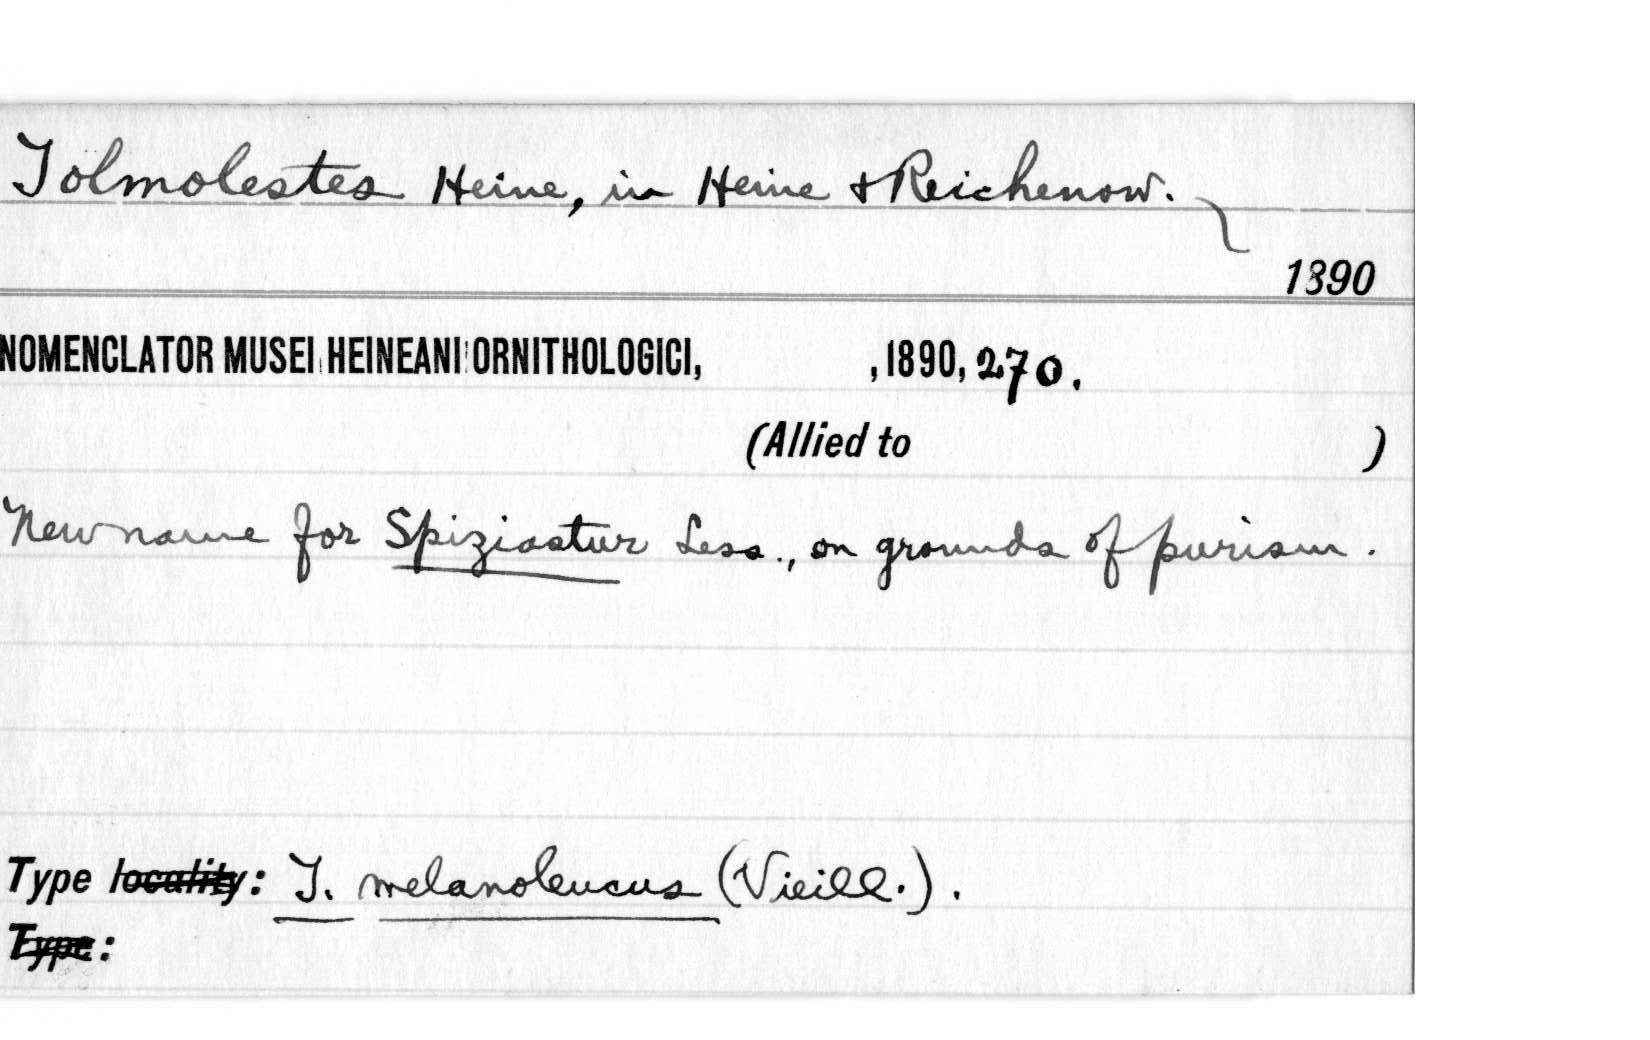 Tolmolestes Heine, in Heine & Reichenow.
1890
NOMENCLATOR MUSEI HEINEANI ORNITHOLOGICI, , 1890, 270.
(Allied to )
New name for Spiziastur Less., on grounds of purism.
Type locality: T. melanoleucus (Vieill.).
Type: